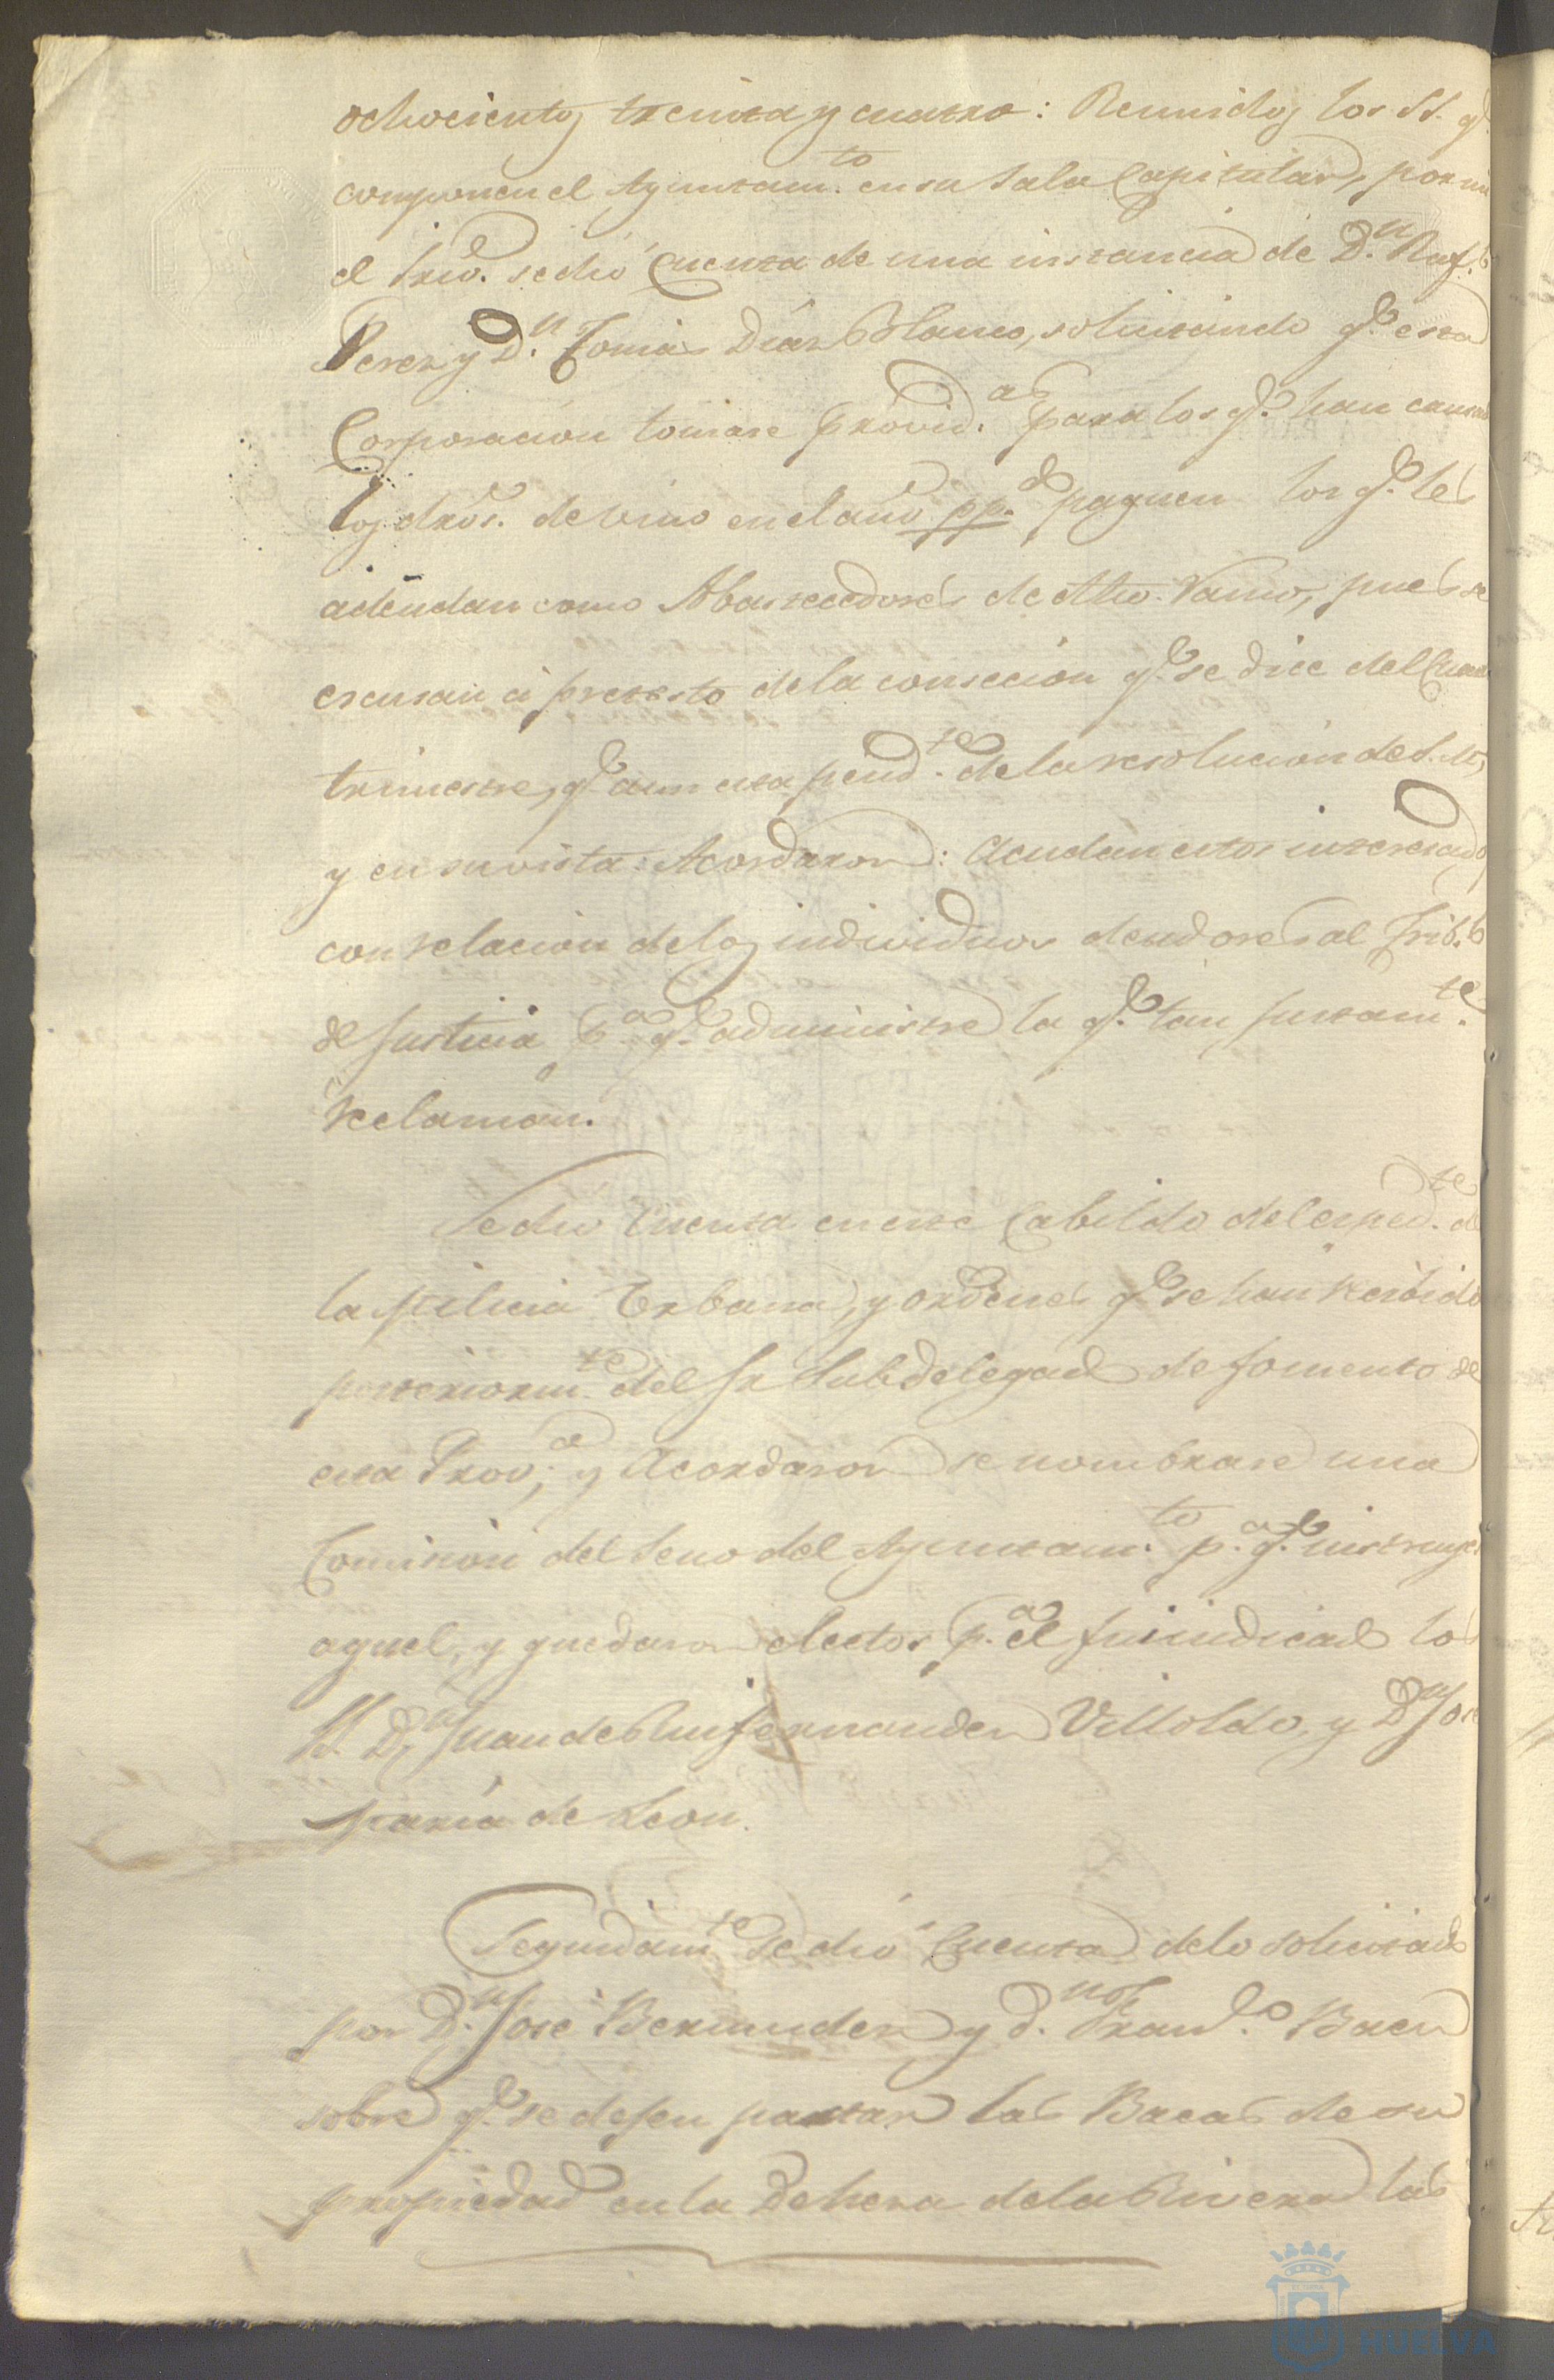 ochocientos treinta y cuatro: Reunidos los SS. q.e
componen el Ayuntam.to en su Sala Capitular, por mi
el Srio. se dió Cuenta de una instancia de D.n Raf.l
Perez y D.n Tomas Diaz Blanco, solicitando q.e esta
Corporacion tomase provid.as para los q.e han causad
los dros. de vino en el año pp.do paguen los q.e les
adeudan como Abastecedores de dho. Ramo, pues se
escusan á pretesto de la consecion q.e se dice del Cuar
trimestre, q.e aun esta pend.te de la resolucion de S. M.,
y en su vista: Acordaron: Acudan estos interesados
con relacion de los individuos deudores al Trib.l
de Justicia p.a q.e administre la q.e tan justam.te
reclaman.
Se dió Cuenta en este Cabildo del exped.te de
la Milicia Urbana, y ordenes q.e se han recibido
posteriorm.te del Sr Subdelegado de Fomento de
esta Prov.a; y Acordaron se nombrase una
Comision del Seno del Ayuntam.to p.a q.e instruya
aquel, y quedaron electos p.a el fin indicado los
SS. D.n Juan de Fernandez Villoldo, y D.n Jose
Maria de Leon.
Seguidam.te se dió Cuenta de lo solicitado
por D.n José Bermudez y D.n Fran.co Baez
sobre q.e se dejen pastar las Bacas de su
propiedad en la Dehesa de la Rivera las
HUELVA